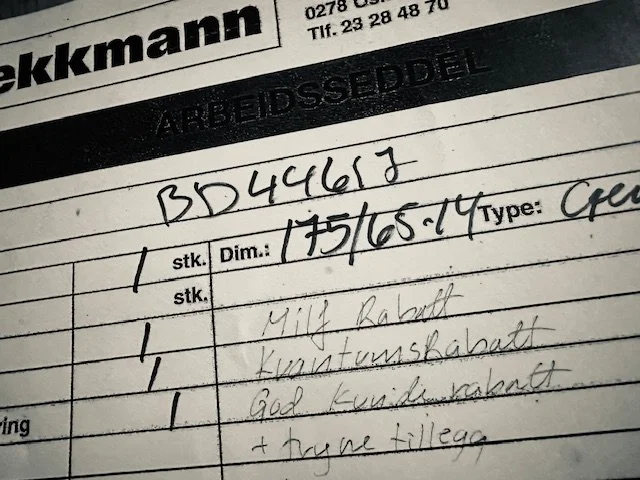 ekkmann
0278 Os
Tlf. 23 28 48 70
ARBEIDSSEDDEL
1 stk. Dim.: 175/65-14 Type:
stk.
1 Milf Rabatt
1 KvantumsRabatt
ring 1 God Kunde rabatt
+ tryne tillegg